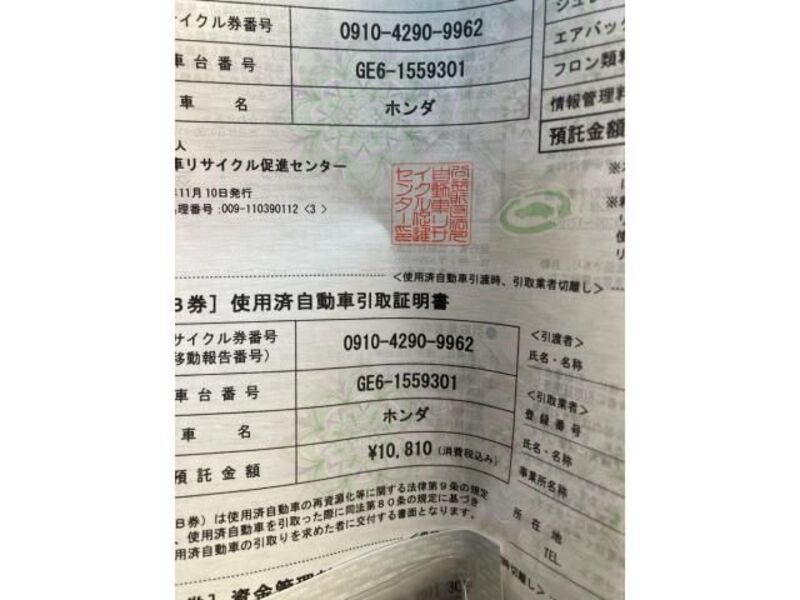 サイクル券番号 0910-4290-9962
車台番号 GE6-1559301
車名 ホンダ
エアバッ
フロン類料
情報管理料
預託金額
人
車リサイクル促進センター
年11月10日発行
理番号:009-110390112 <3>
<使用済自動車引渡時、引取業者切離し>
B券］使用済自動車引取証明書
サイクル券番号
移動報告番号） 0910-4290-9962
車台番号 GE6-1559301
車名 ホンダ
預託金額 ¥10,810 (消費税込み)
<引渡者>
氏名・名称
<引取業者>
登録番号
氏名・名称
事業所名称
所在地
TEL
B券）は使用済自動車の再資源化等に関する法律第9条の規定
、使用済自動車を引取った際に同法第80条の規定に基づき
用済自動車の引取りを求めた者に交付する書面となります。
券］資金管理